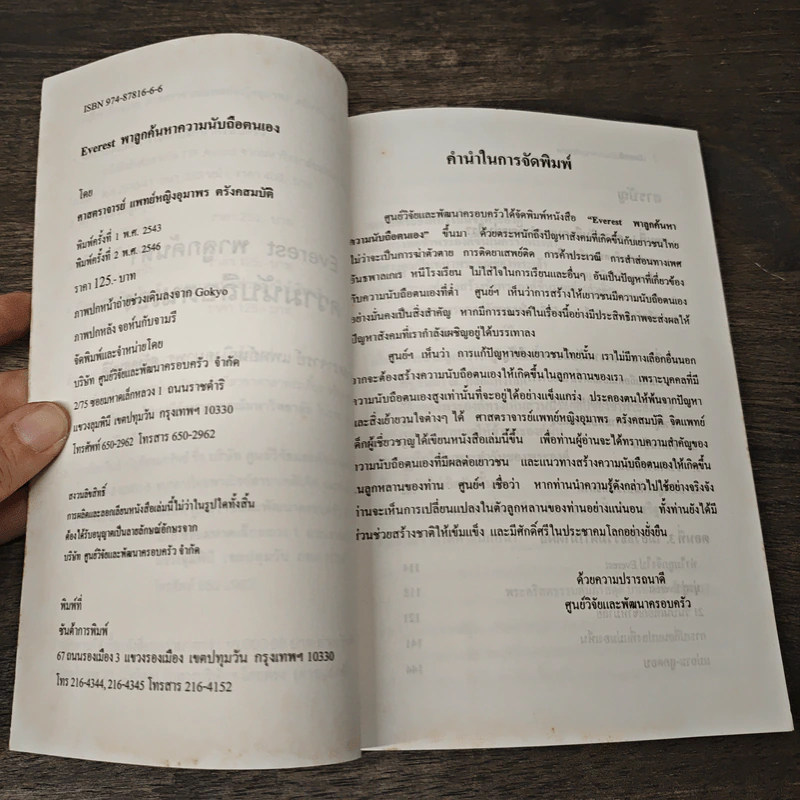 ISBN 974-87816-6-6
Everest พาลูกค้นหาความนับถือตนเอง
โดย
ศาสตราจารย์ แพทย์หญิงอุมาพร ตรังคสมบัติ
พิมพ์ครั้งที่ 1 พ.ศ. 2543
พิมพ์ครั้งที่ 2 พ.ศ. 2546
ราคา 125.- บาท
ภาพปกหน้าถ่ายช่วงเดินลงจาก Gokyo
ภาพปกหลัง จอห์นกับจามรี
จัดพิมพ์และจำหน่ายโดย
บริษัท ศูนย์วิจัยและพัฒนาครอบครัว จำกัด
2/75 ซอยมหาดเล็กหลวง 1 ถนนราชดำริ
แขวงลุมพินี เขตปทุมวัน กรุงเทพฯ 10330
โทรศัพท์ 650-2962 โทรสาร 650-2962
สงวนลิขสิทธิ์
การผลิตและลอกเลียนหนังสือเล่มนี้ไม่ว่าในรูปใดทั้งสิ้น
ต้องได้รับอนุญาตเป็นลายลักษณ์อักษรจาก
บริษัท ศูนย์วิจัยและพัฒนาครอบครัว จำกัด
พิมพ์ที่
ซันต้าการพิมพ์
67 ถนนรองเมือง 3 แขวงรองเมือง เขตปทุมวัน กรุงเทพฯ 10330
โทร 216-4344, 216-4345 โทรสาร 216-4152
คำนำในการจัดพิมพ์
ศูนย์วิจัยและพัฒนาครอบครัวได้จัดพิมพ์หนังสือ "Everest พาลูกค้นหา
ความนับถือตนเอง" ขึ้นมา ด้วยตระหนักถึงปัญหาสังคมที่เกิดขึ้นกับเยาวชนไทย
ไม่ว่าจะเป็นการฆ่าตัวตาย การติดยาเสพย์ติด การค้าประเวณี การสำส่อนทางเพศ
อันธพาลเกเร หนีโรงเรียน ไม่ใส่ใจในการเรียนและอื่นๆ อันเป็นปัญหาที่เกี่ยวข้อง
กับความนับถือตนเองที่ต่ำ ศูนย์ฯ เห็นว่าการสร้างให้เยาวชนมีความนับถือตนเอง
อย่างมั่นคงเป็นสิ่งสำคัญ หากมีการรณรงค์ในเรื่องนี้อย่างมีประสิทธิภาพจะส่งผลให้
ปัญหาสังคมที่เรากำลังเผชิญอยู่ได้บรรเทาลง
ศูนย์ฯ เห็นว่า การแก้ปัญหาของเยาวชนไทยนั้น เราไม่มีทางเลือกอื่นนอก
จากจะต้องสร้างความนับถือตนเองให้เกิดขึ้นในลูกหลานของเรา เพราะบุคคลที่มี
ความนับถือตนเองสูงเท่านั้นที่จะอยู่ได้อย่างแข็งแกร่ง ประคองตนให้พ้นจากปัญหา
และสิ่งเย้ายวนใจต่างๆ ได้ ศาสตราจารย์แพทย์หญิงอุมาพร ตรังคสมบัติ จิตแพทย์
เด็กผู้เชี่ยวชาญได้เขียนหนังสือเล่มนี้ขึ้น เพื่อผู้อ่านจะได้ทราบความสำคัญของ
ความนับถือตนเองที่มีผลต่อเยาวชน และแนวทางสร้างความนับถือตนเองให้เกิดขึ้น
ในลูกหลานของท่าน ศูนย์ฯ เชื่อว่า หากท่านนำความรู้ดังกล่าวไปใช้อย่างจริงจัง
ท่านจะเห็นการเปลี่ยนแปลงในตัวลูกหลานของท่านอย่างแน่นอน ทั้งท่านยังได้มี
ส่วนช่วยสร้างชาติให้เข้มแข็ง และมีศักดิ์ศรีในประชาคมโลกอย่างยั่งยืน
ด้วยความปรารถนาดี
ศูนย์วิจัยและพัฒนาครอบครัว